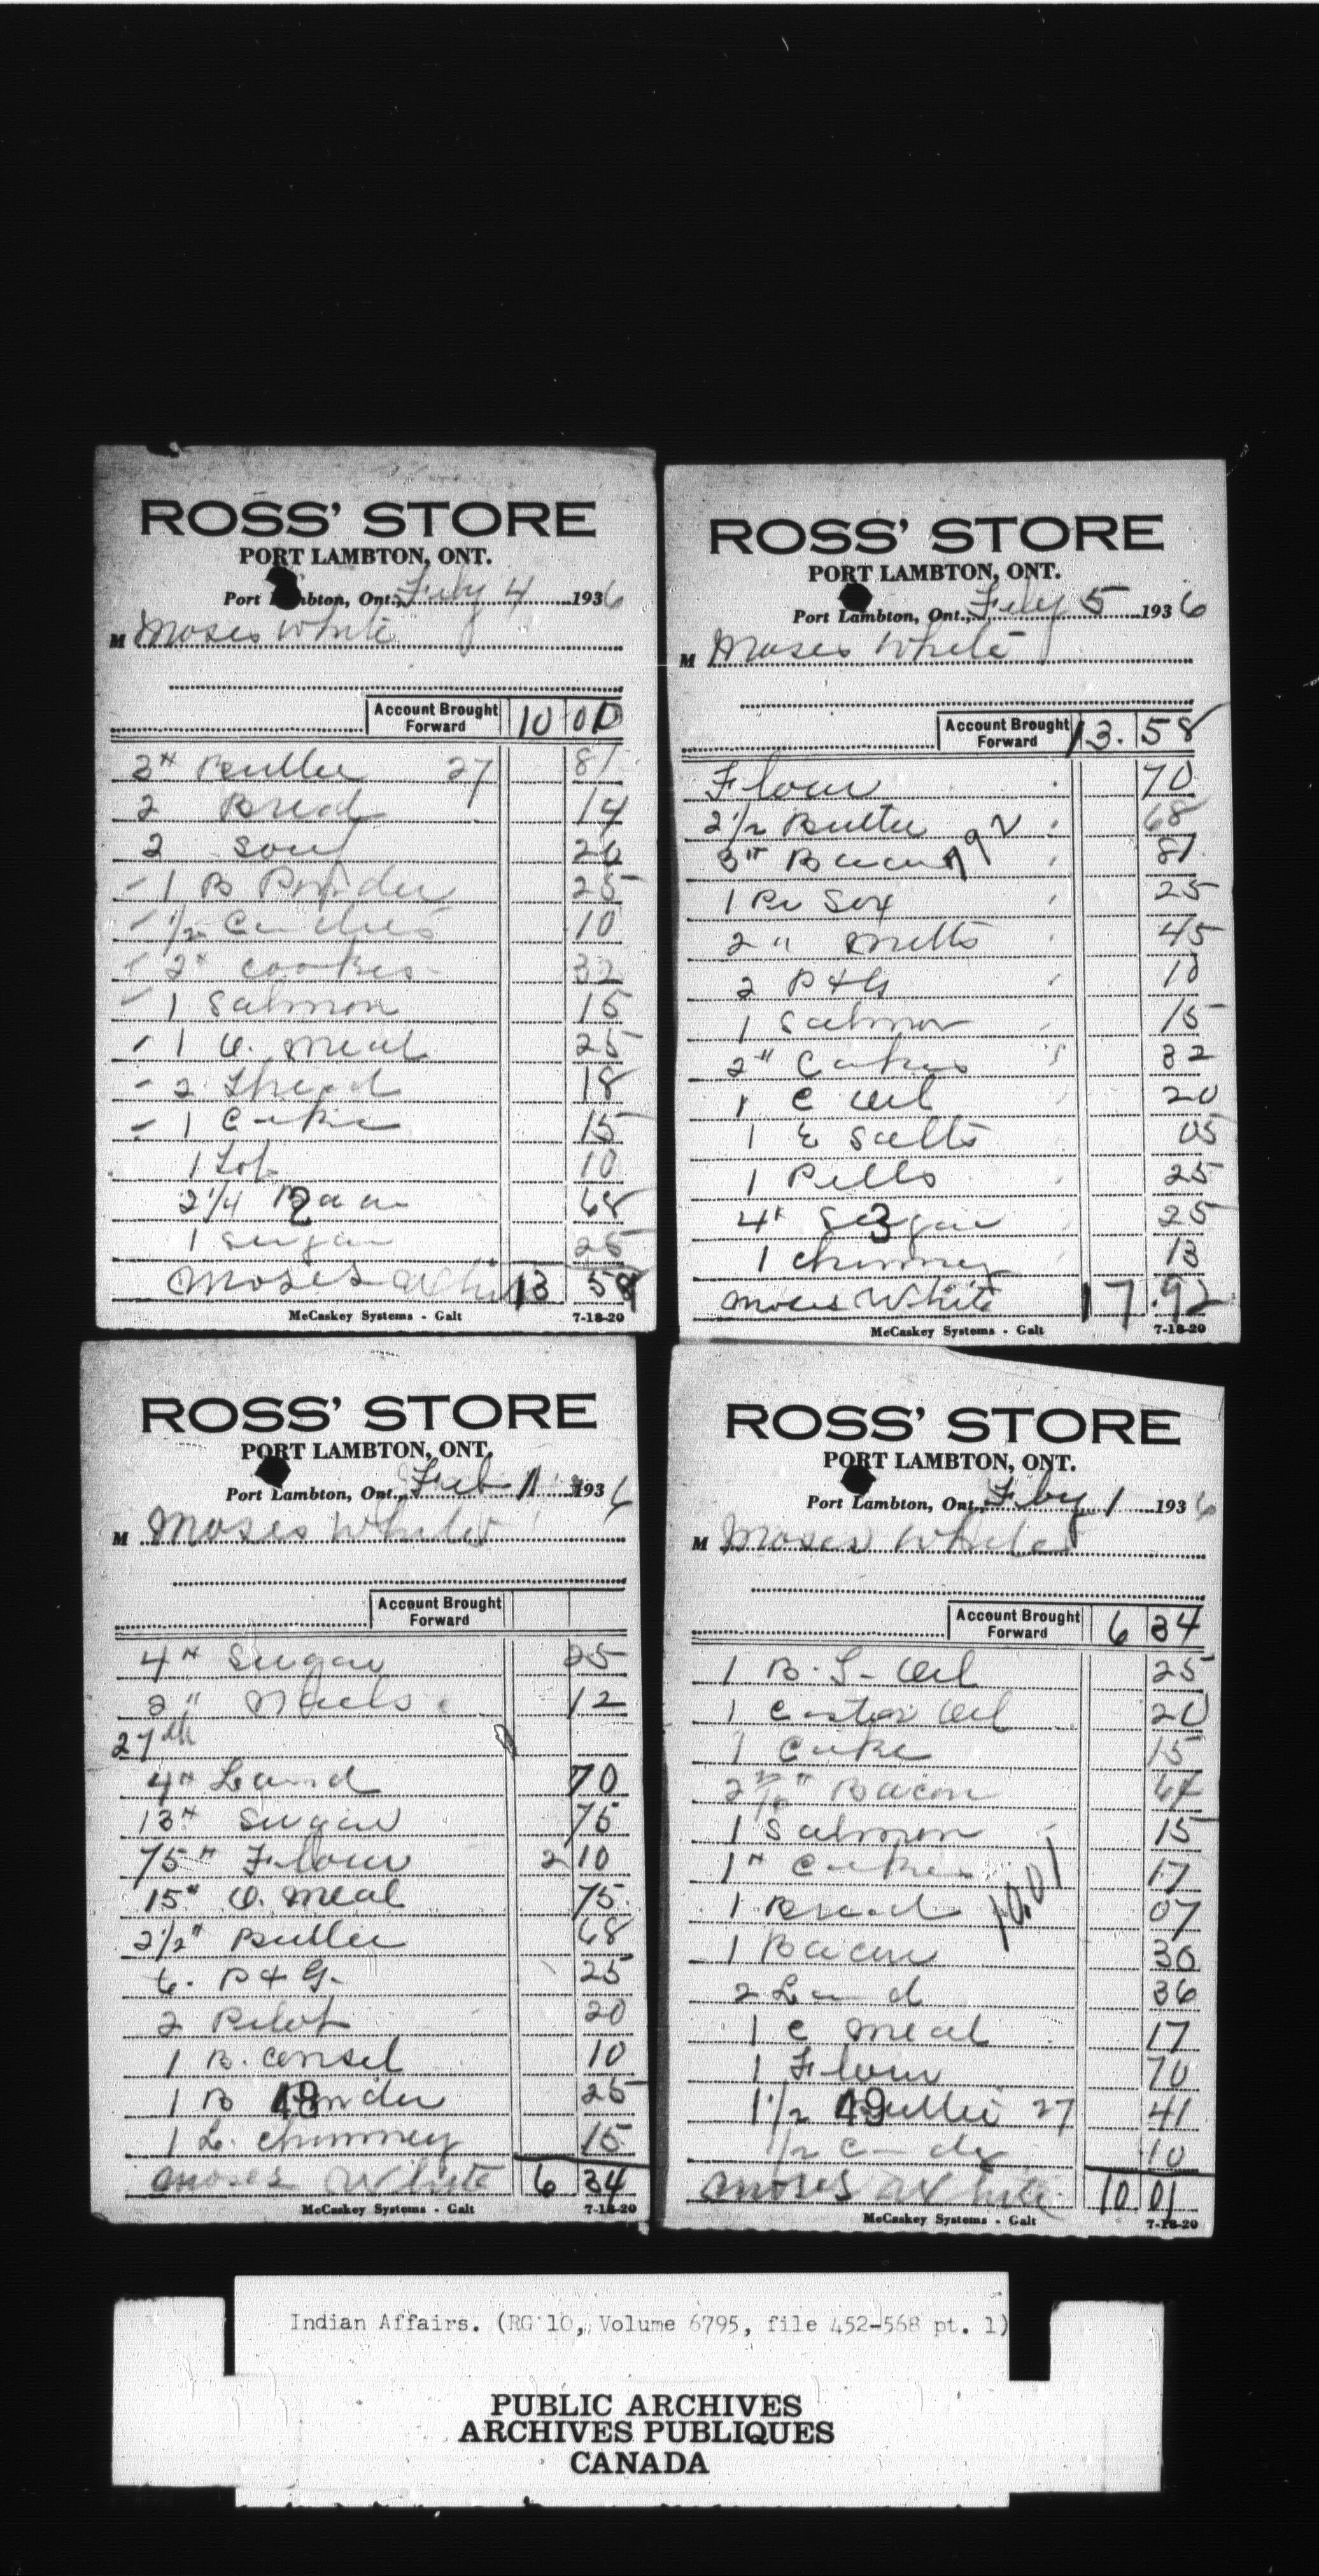 ROSS' STORE
PORT LAMBTON, ONT.
Port Lambton, Ont., Feby 4 1936
M Moses White
Account Brought Forward 10 01
3# Butter 27 81
2 Bread 14
2 Soup 20
1 B Powder 25
1/2 Candies 10
2# Cookies 32
1 Salmon 15
1 O. Meal 25
2 Thread 18
1 Cake 15
1 10
2 1/4 Bacon 68
1 Sugar 25
2
Moses White 13 58
McCaskey Systems - Galt 7-18-20
ROSS' STORE
PORT LAMBTON, ONT.
Port Lambton, Ont., Feby 5 1936
M Moses White
Account Brought Forward 13. 58
Flour 70
2 1/2 Butter 68
3# Bacon 81
1 Pr Sox 25
2 " Mitts 45
2 P & G 10
1 Salmon 15
2" Cakes 32
1 C Oil 20
1 E Salts 05
1 Pills 25
4# Sugar 25
3
1 Chimney 13
Moses White 17.92
McCaskey Systems - Galt 7-18-20
ROSS' STORE
PORT LAMBTON, ONT.
Port Lambton, Ont., Feb 1 1936
M Moses White
Account Brought Forward
4# Sugar 25
2 " Nails 12
27th
4# Lard 70
13# Sugar 75
75# Flour 2 10
15# O. Meal 75
2 1/2" Butter 68
6. P & G. 25
2 Pilot 20
1 B. 10
1 B Powder 25
48
1 L. Chimney 15
Moses White 6 34
McCaskey Systems - Galt 7-18-20
ROSS' STORE
PORT LAMBTON, ONT.
Port Lambton, Ont., Feby 1 1936
M Moses White
Account Brought Forward 6 34
1 B. L. Oil 25
1 Castor Oil 20
1 Cake 15
Bacon 64
1 Salmon 15
1# Cakes 17
10.01
1 Bread 07
1 Bacon 30
2 Lard 36
1 C Meal 17
1 Flour 70
1 1/2 Butter 27 41
49
1/2 Candy 10
Moses White 10 01
McCaskey Systems - Galt 7-18-20
Indian Affairs. (RG 10, Volume 6795, file 452-568 pt. 1)
PUBLIC ARCHIVES
ARCHIVES PUBLIQUES
CANADA